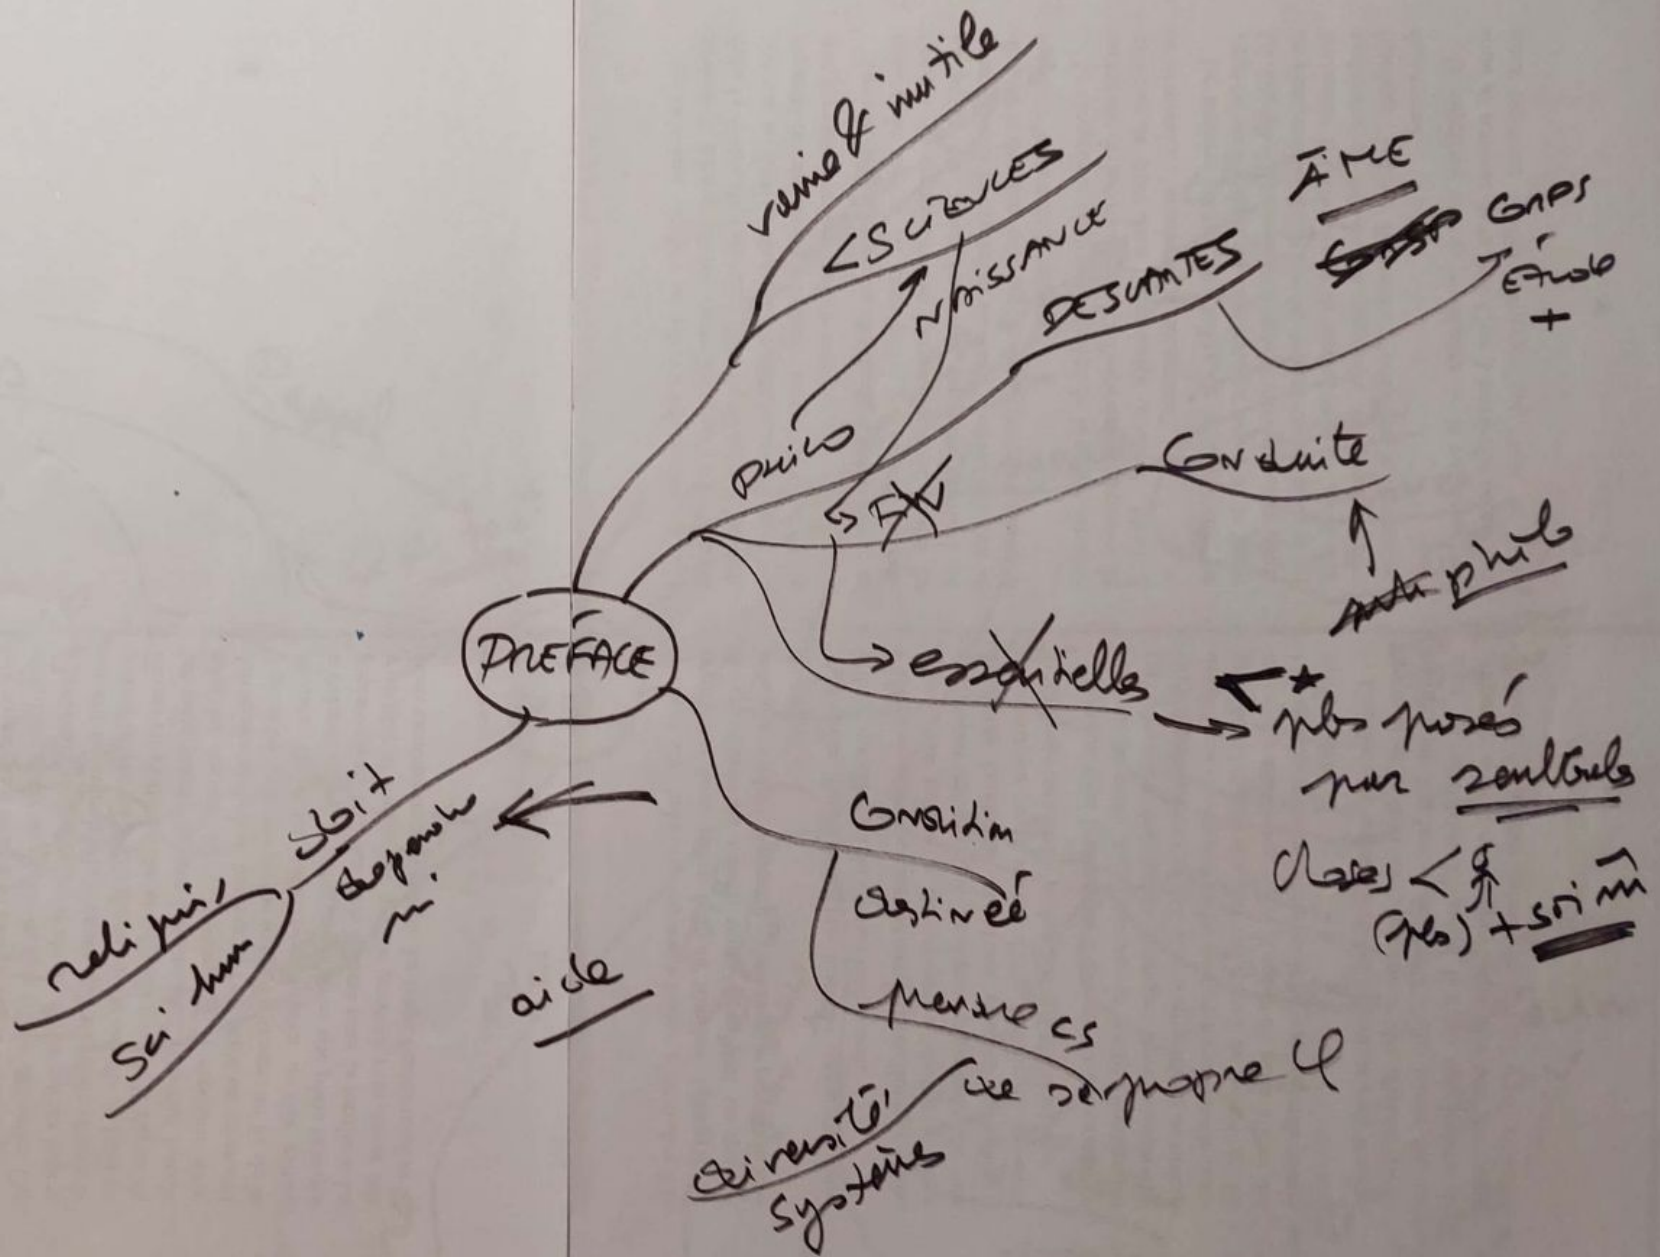 vaine & inutile
< SCIENCES
NAISSANCE
DESCARTES
ÂME
CORPS
ÉTUDE
+
PHILO
Conduite
philo
PRÉFACE
essentielles
pbs posés
par
choses <
(pbs) + soi m̂
Condition
destinée
prendre cs
de sa propre φ
diversité
systèmes
doit
religion
sci hum
aide